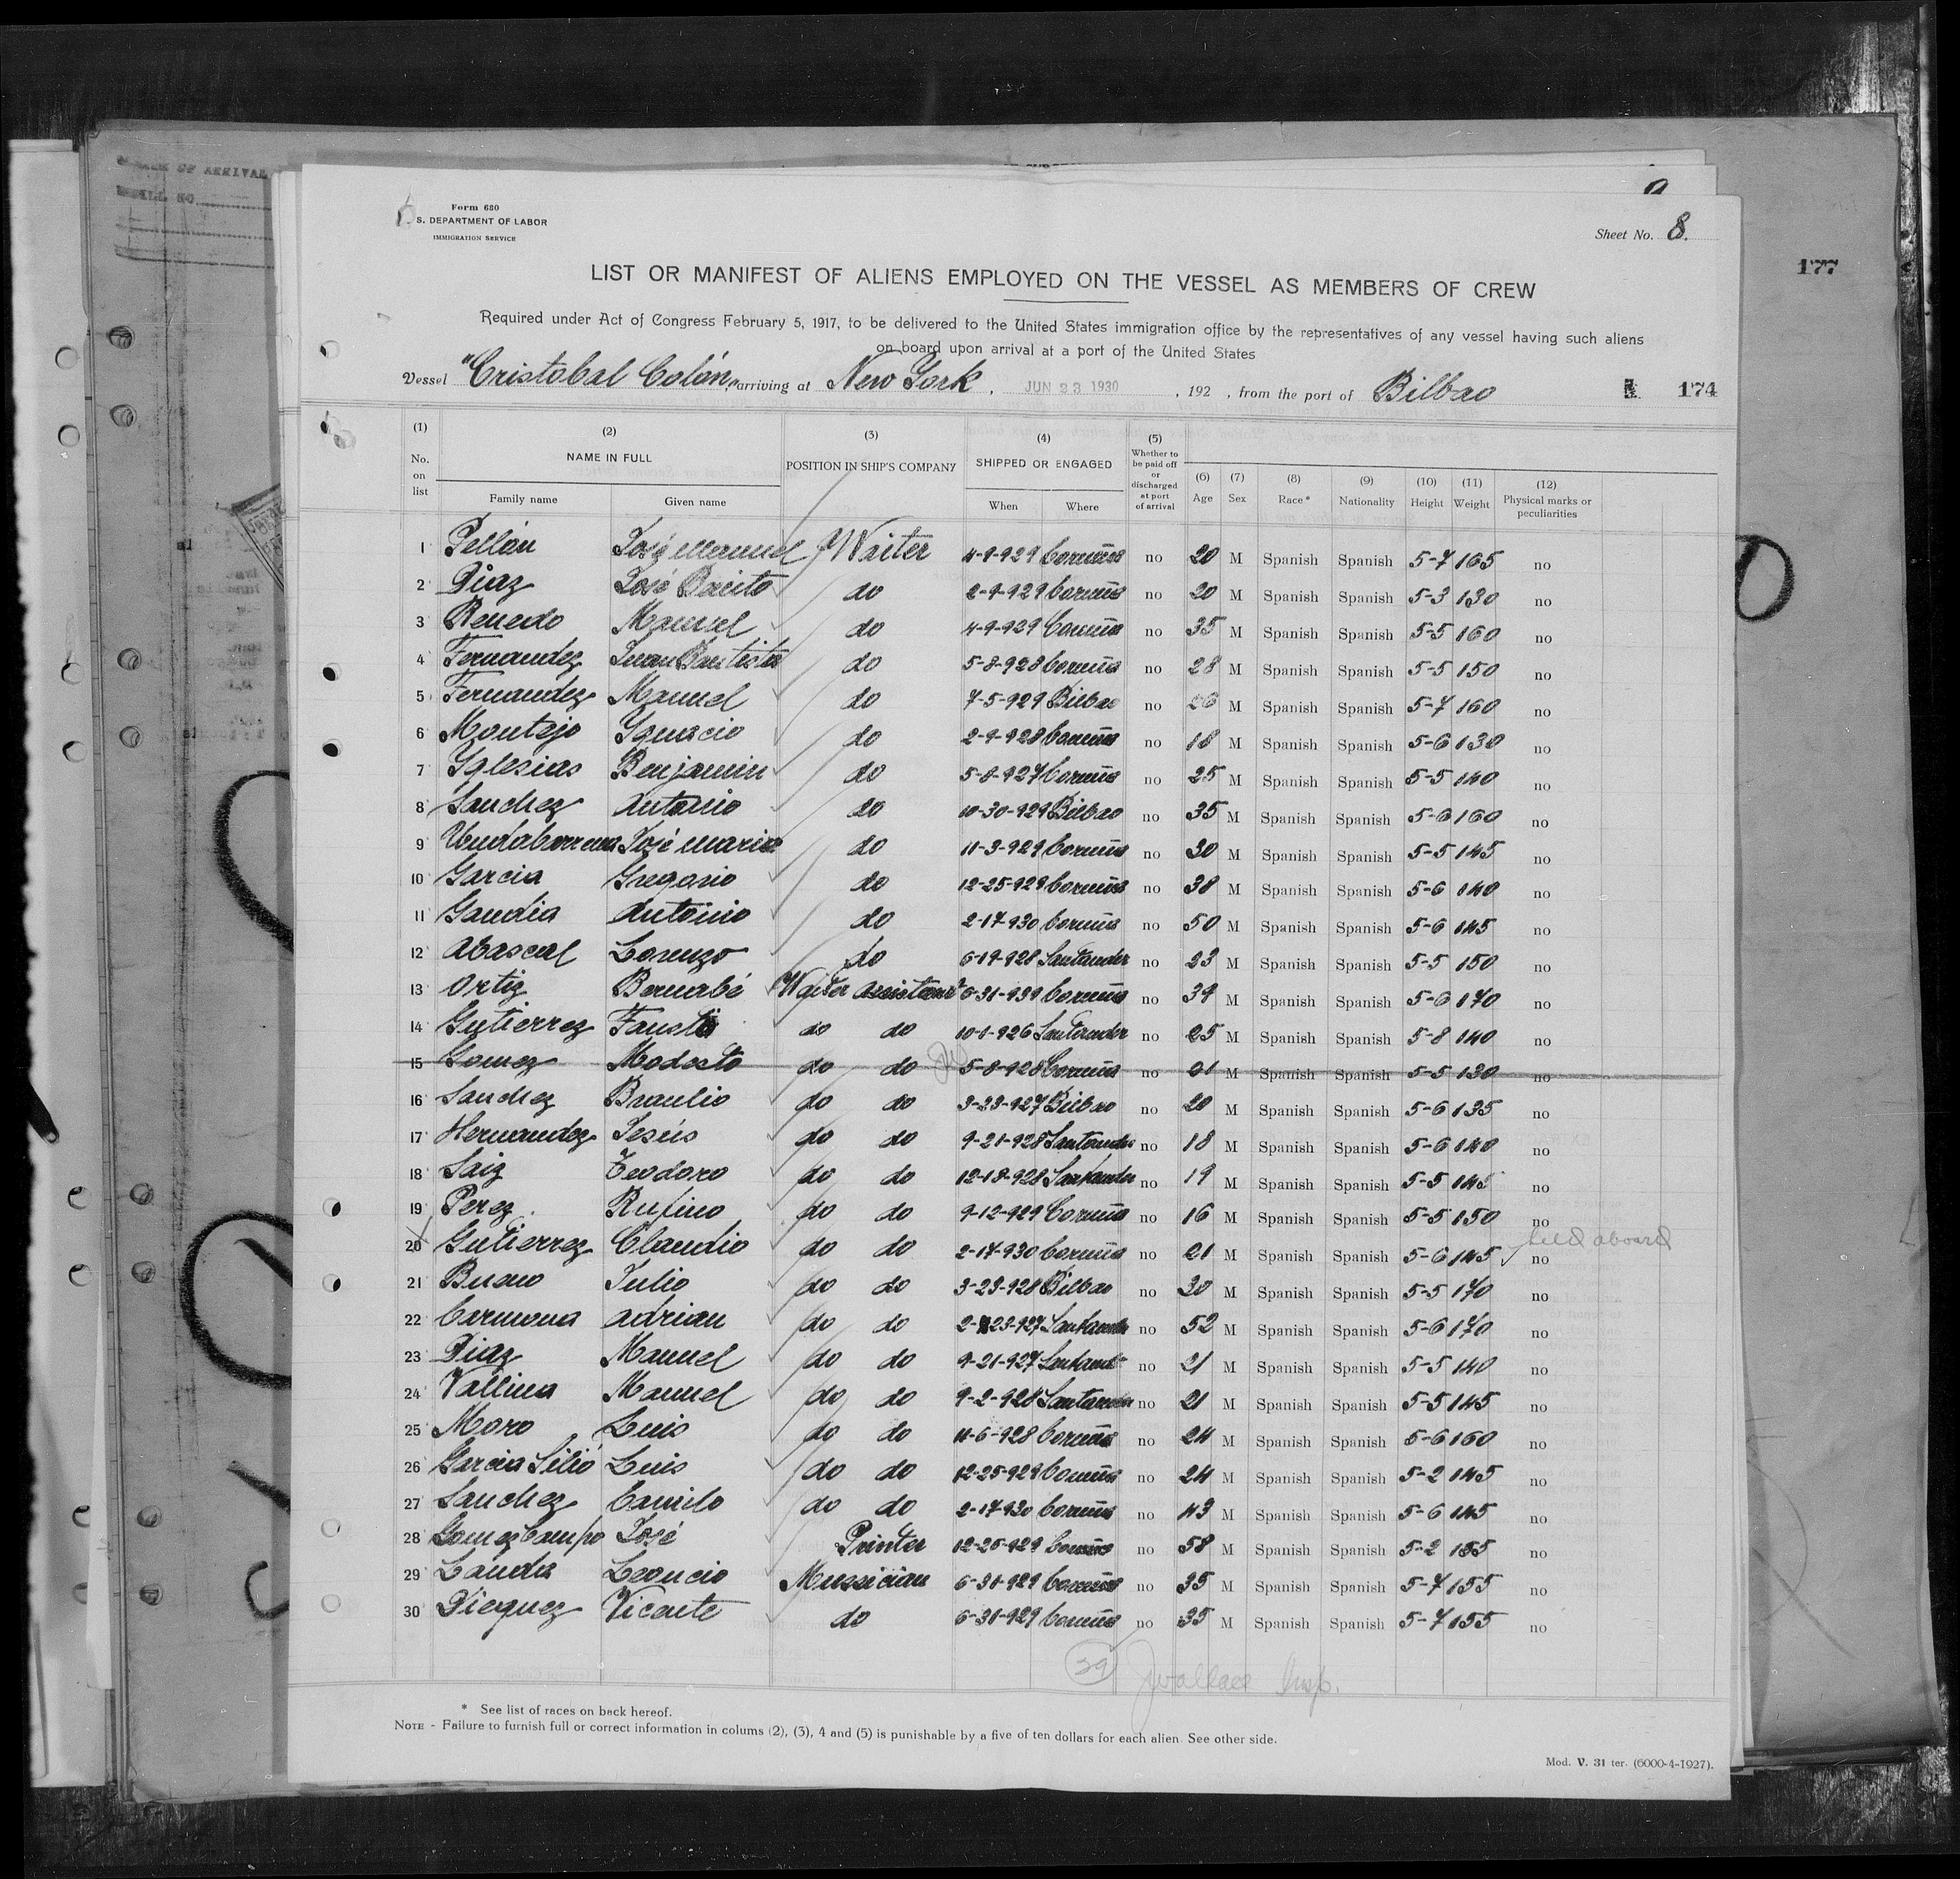 Form 680
S. DEPARTMENT OF LABOR
IMMIGRATION SERVICE
Sheet No. 8.
177
LIST OR MANIFEST OF ALIENS EMPLOYED ON THE VESSEL AS MEMBERS OF CREW
Required under Act of Congress February 5, 1917, to be delivered to the United States immigration office by the representatives of any vessel having such aliens
on board upon arrival at a port of the United States
Vessel "Cristobal Colón," arriving at New York, JUN 23 1930, 192 , from the port of Bilbao 174
(1) No. on list (2) NAME IN FULL Family name Given name (3) POSITION IN SHIP'S COMPANY (4) SHIPPED OR ENGAGED When Where (5) Whether to be paid off or discharged at port of arrival (6) Age (7) Sex (8) Race* (9) Nationality (10) Height (11) Weight (12) Physical marks or peculiarities
1 Pellón José Manuel Waiter 4-9-929 Coruña no 20 M Spanish Spanish 5-7 165 no
2 Diaz José Benito do 2-9-929 Coruña no 20 M Spanish Spanish 5-3 130 no
3 Renedo Manuel do 4-9-929 Coruña no 35 M Spanish Spanish 5-5 160 no
4 Fernandez Juan Bautista do 5-8-928 Coruña no 28 M Spanish Spanish 5-5 150 no
5 Fernandez Manuel do 7-5-929 Bilbao no 26 M Spanish Spanish 5-7 160 no
6 Montejo Ygnacio do 2-9-928 Coruña no 18 M Spanish Spanish 5-6 130 no
7 Yglesias Benjamin do 5-8-927 Coruña no 25 M Spanish Spanish 5-5 140 no
8 Sanchez Antonio do 10-30-929 Bilbao no 35 M Spanish Spanish 5-6 160 no
9 José Maria do 11-3-929 Coruña no 30 M Spanish Spanish 5-5 145 no
10 Garcia Gregorio do 12-25-929 Coruña no 38 M Spanish Spanish 5-6 140 no
11 Gandia Antonio do 2-17-930 Coruña no 50 M Spanish Spanish 5-6 145 no
12 Abascal Lorenzo do 6-19-928 Santander no 23 M Spanish Spanish 5-5 150 no
13 Ortiz Bernabé Waiter assistant 6-31-939 Coruña no 39 M Spanish Spanish 5-6 170 no
14 Gutierrez Fausto do do 10-1-926 Santander no 25 M Spanish Spanish 5-8 140 no
15 Gomez Modesto do do 5-8-928 Coruña no 21 M Spanish Spanish 5-5 130 no
16 Sanchez Braulio do do 3-23-927 Bilbao no 20 M Spanish Spanish 5-6 135 no
17 Hernandez Jesús do do 9-21-928 Santander no 18 M Spanish Spanish 5-6 140 no
18 Saiz Teodoro do do 12-18-928 Santander no 19 M Spanish Spanish 5-5 145 no
19 Perez Rufino do do 9-12-929 Coruña no 16 M Spanish Spanish 5-5 150 no
20 Gutierrez Claudio do do 2-17-930 Coruña no 21 M Spanish Spanish 5-6 145 no held aboard
21 Bueno Julio do do 3-23-928 Bilbao no 30 M Spanish Spanish 5-5 170 no
22 Carmona Adrian do do 2-23-927 Santander no 52 M Spanish Spanish 5-6 170 no
23 Diaz Manuel do do 9-21-927 Santander no 21 M Spanish Spanish 5-5 140 no
24 Vallina Manuel do do 9-2-928 Santander no 21 M Spanish Spanish 5-5 145 no
25 Moro Luis do do 11-6-928 Coruña no 24 M Spanish Spanish 5-6 160 no
26 Garcia Silió Luis do do 12-25-929 Coruña no 24 M Spanish Spanish 5-2 145 no
27 Sanchez Camilo do do 2-17-930 Coruña no 43 M Spanish Spanish 5-6 145 no
28 Gomez Campo José Printer 12-25-929 Coruña no 58 M Spanish Spanish 5-2 155 no
29 Landa Leoncio Mussician 6-31-929 Coruña no 35 M Spanish Spanish 5-7 155 no
30 Dieguez Vicente do 6-31-929 Coruña no 35 M Spanish Spanish 5-7 155 no
29 JWallace Insp.
* See list of races on back hereof.
NOTE - Failure to furnish full or correct information in colums (2), (3), 4 and (5) is punishable by a five of ten dollars for each alien. See other side.
Mod. V. 31 ter. (6000-4-1927).